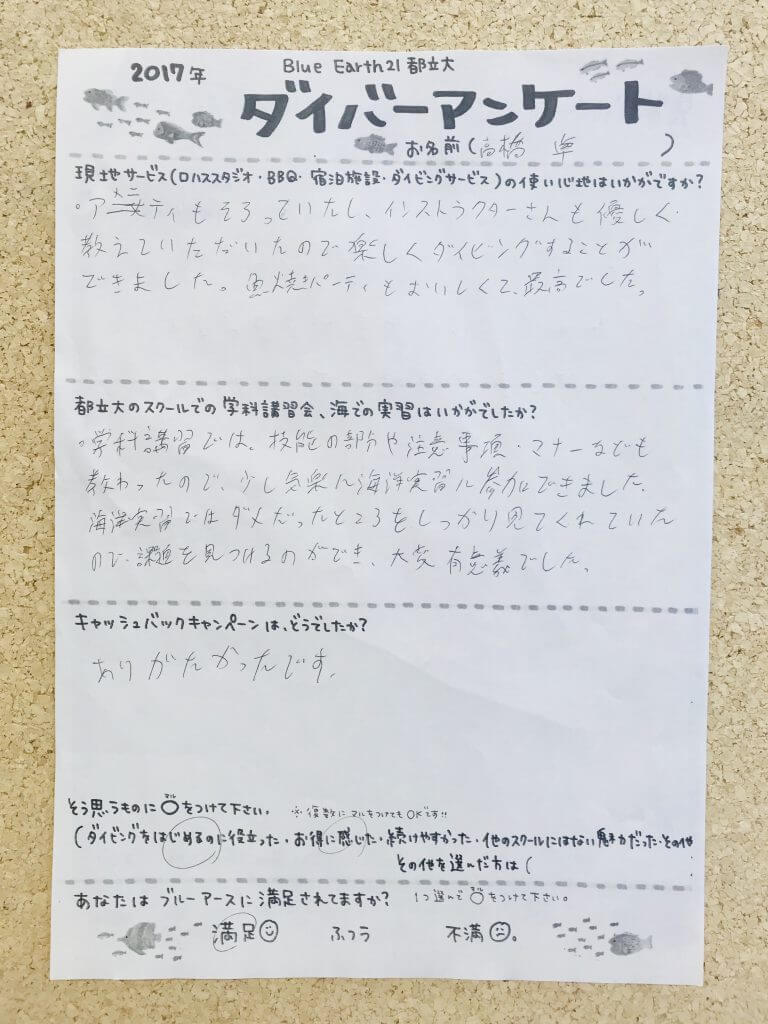 2017年
Blue Earth21 都立大
ダイバーアンケート
お名前(高橋 )
現地サービス(ロハススタジオ・BBQ・宿泊施設・ダイビングサービス)の使い心地はいかがですか?
・アメニティもそろっていたし、インストラクターさんも優しく
教えていただいたので楽しくダイビングすることが
できました。魚焼きパーティもおいしくて、最高でした。
都立大のスクールでの学科講習会、海での実習はいかがでしたか?
・学科講習では、技能の部分や注意事項・マナーなども
教わったので、少し気楽に海洋実習に参加できました。
海洋実習ではダメだったところをしっかり見てくれていた
ので課題を見つけるのができ、大変有意義でした。
キャッシュバックキャンペーンは、どうでしたか?
ありがたかったです。
そう思うものに〇をつけて下さい。 ※複数にマルをつけてもOKです!!
マル
(ダイビングをはじめるのに役立った・お得に感じた・続けやすかった・他のスクールにはない魅力だった・その他
その他を選んだ方は(
あなたはブルーアースに満足されてますか? 1つ選んで〇をつけて下さい。
満足 ふつう 不満。